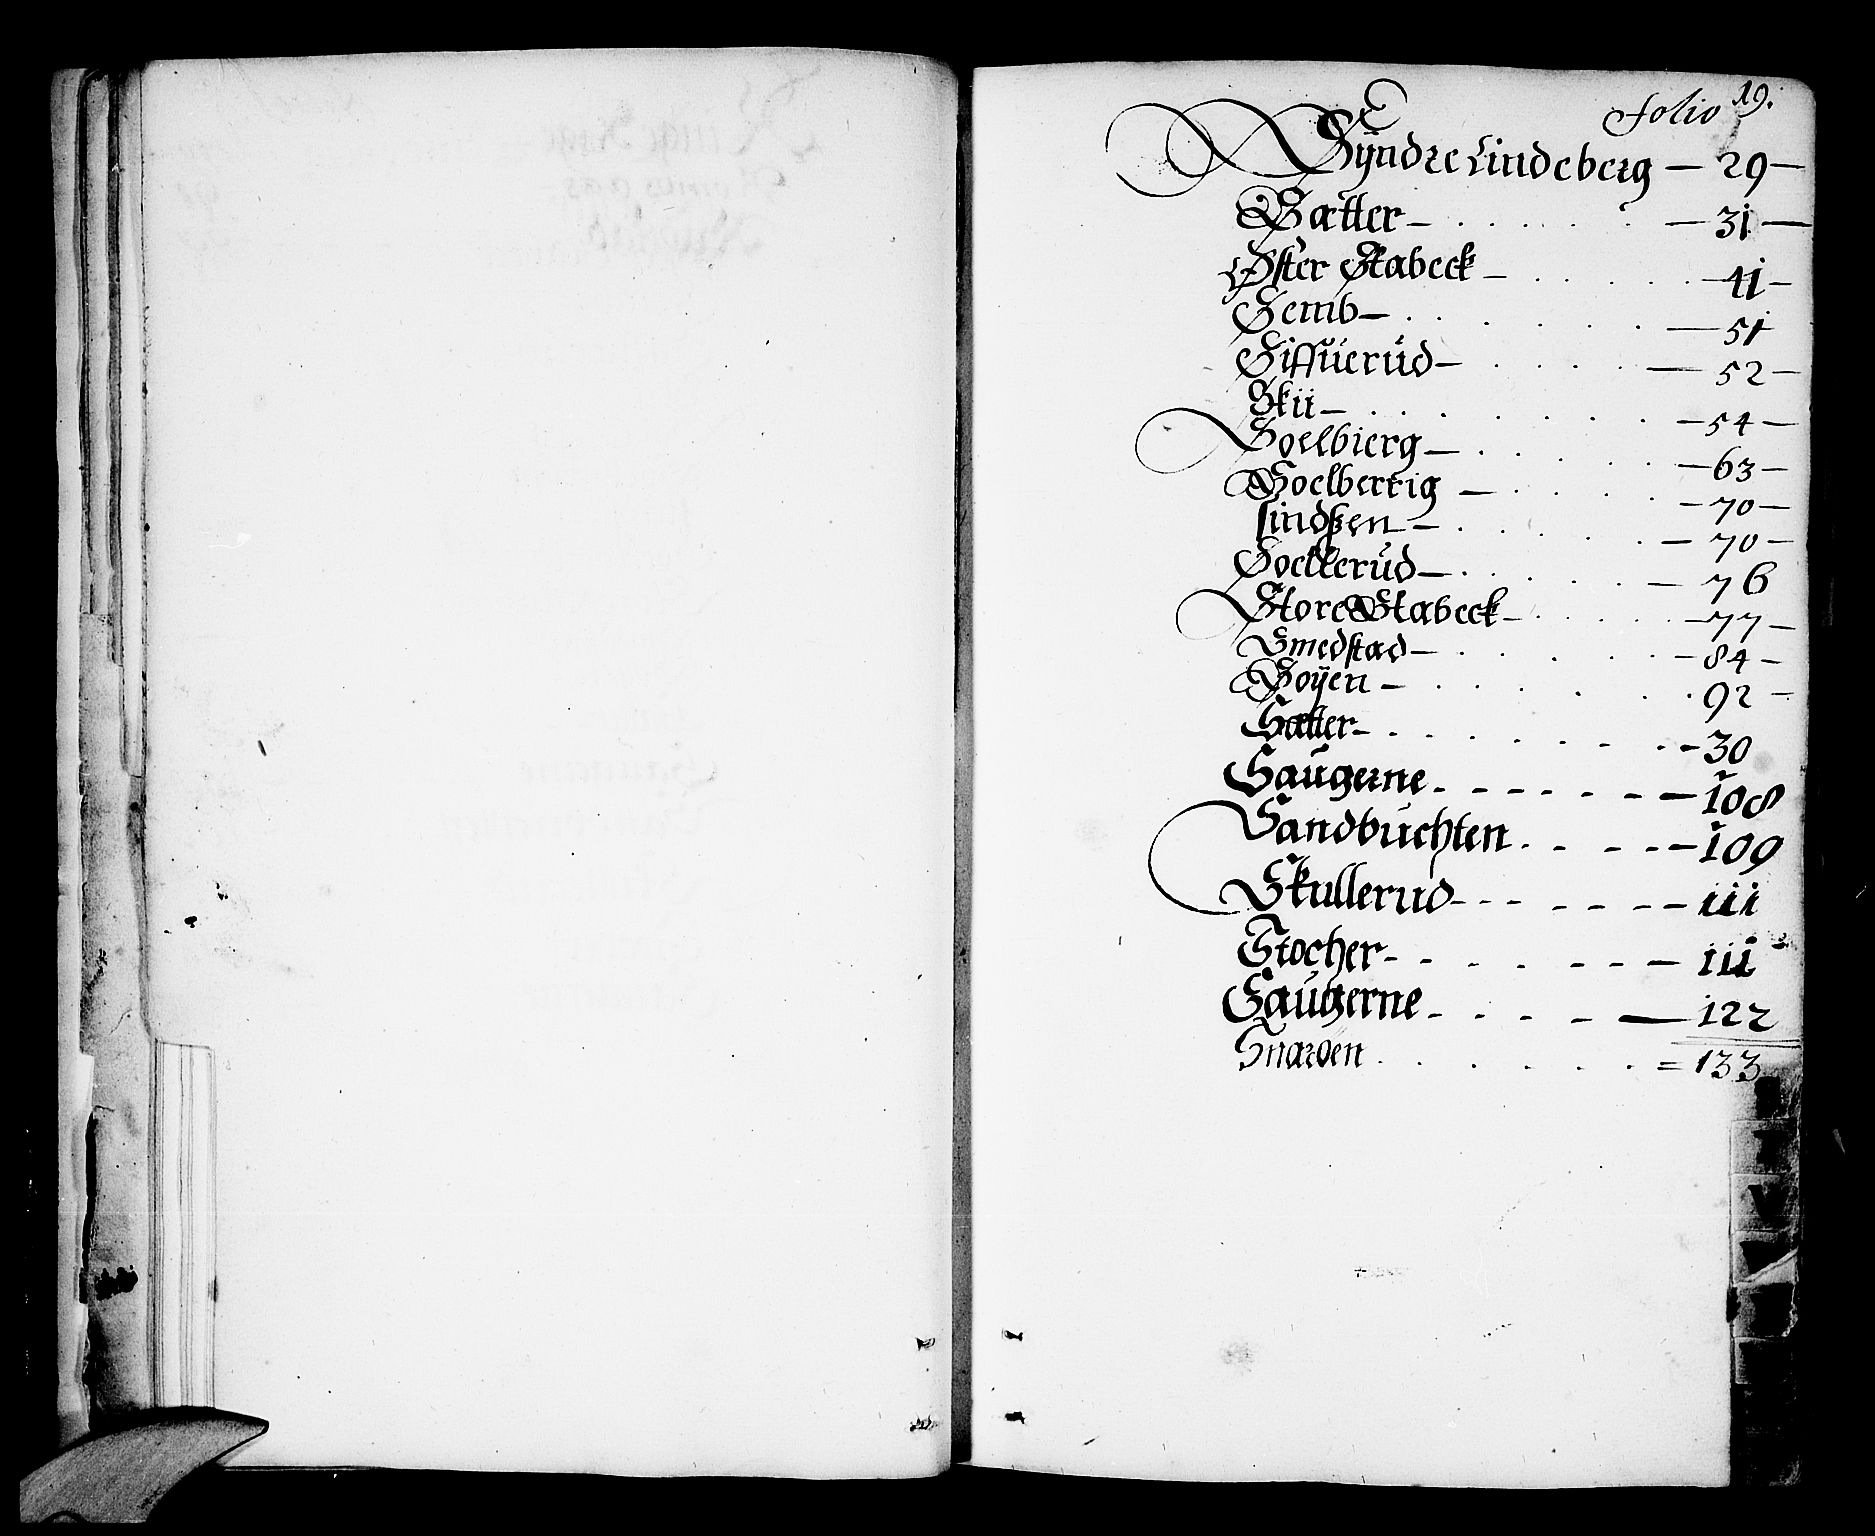 folio 19.
Syndre Lindeberg — 29 —
Sætter — . . . . . — 31 —
Øster Stabeck — . . . . . 41 —
Semb — . . . . . — 51
Siffuerüd — . . . . — 52 —
Skii — . . . . . . — 54 —
Soelbierg — . . . . . — 63 —
Soelberrig — . . . . — 70 —
sindßen — . . . . . — 70 —
Soellerüd — . . . . — 76
Store Stabeck — . . . . . — 77 —
Smedstad — . . . . — 84 —
Soÿen — . . . . . 92 —
Sætter — . . . . . . — 30
Saügerne - - - - - - — 108
Sandbüchten . - - - — 109
Skullerud - - - - - - — iii
Stocher - - - - - - — iii
Saügerne - - - - — 122
Snaröen . . . . . . = 133